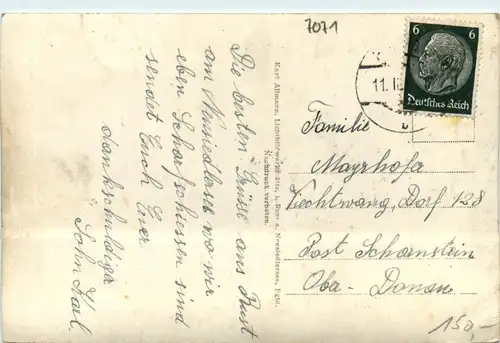 7071
Die besten Grüße aus Rust
am Neusiedlersee wo wir
eben Scharfschiessen sind
sendet Euch Euer
dankschuldiger
Sohn Karl.
Karl Aßmann, Lichtbildwerkstätte, u. Neusiedlersee, Bgld.
Nachdruck verboten.
11. I
b
6 6
Deutsches Reich
Familie
Mayrhofer
Viechtwang, Dorf. 128
Post Scharnstein
Oba- Donau
150,-